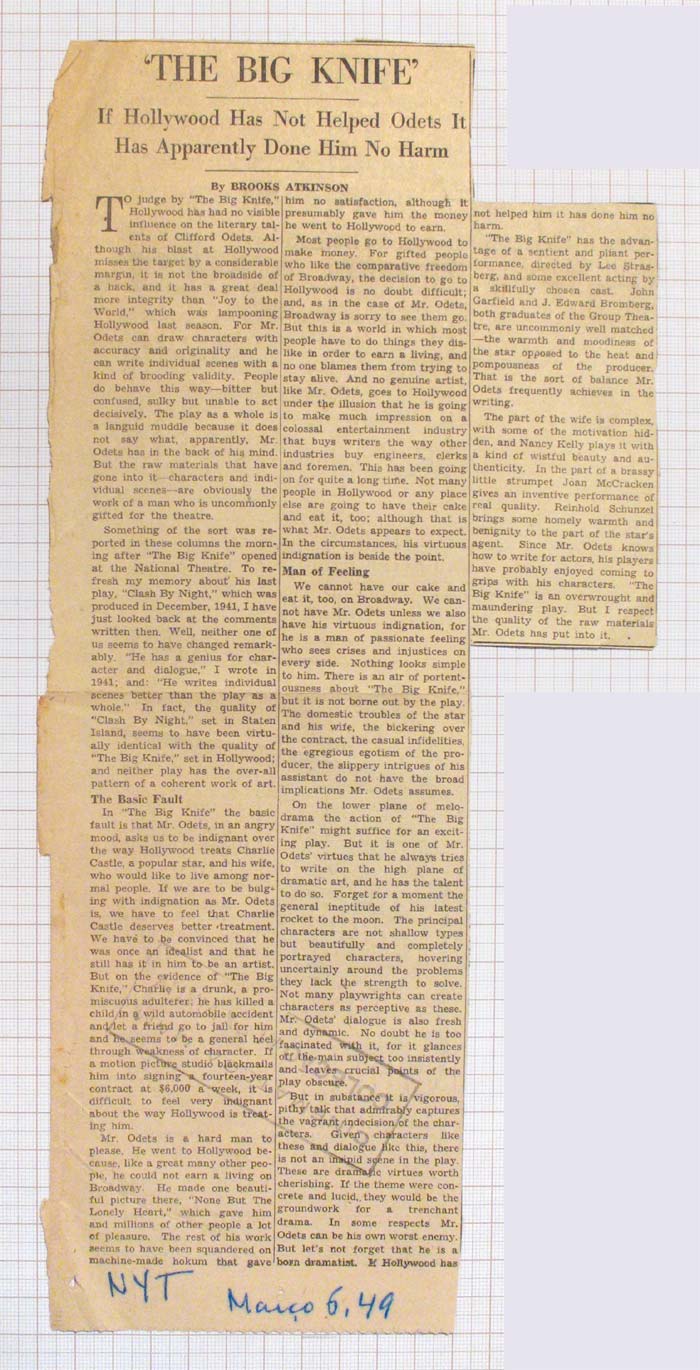 'THE BIG KNIFE'
If Hollywood Has Not Helped Odets It
Has Apparently Done Him No Harm
By BROOKS ATKINSON
TO judge by "The Big Knife,"
Hollywood has had no visible
influence on the literary tal-
ents of Clifford Odets. Al-
though his blast at Hollywood
misses the target by a considerable
margin, it is not the broadside of
a hack, and it has a great deal
more integrity than "Joy to the
World," which was lampooning
Hollywood last season. For Mr.
Odets can draw characters with
accuracy and originality and he
can write individual scenes with a
kind of brooding validity. People
do behave this way—bitter but
confused, sulky but unable to act
decisively. The play as a whole is
a languid muddle because it does
not say what, apparently, Mr.
Odets has in the back of his mind.
But the raw materials that have
gone into it—characters and indi-
vidual scenes—are obviously the
work of a man who is uncommonly
gifted for the theatre.
Something of the sort was re-
ported in these columns the morn-
ing after "The Big Knife" opened
at the National Theatre. To re-
fresh my memory about his last
play, "Clash By Night," which was
produced in December, 1941, I have
just looked back at the comments
written then. Well, neither one of
us seems to have changed remark-
ably. "He has a genius for char-
acter and dialogue," I wrote in
1941; and: "He writes individual
scenes better than the play as a
whole." In fact, the quality of
"Clash By Night," set in Staten
Island, seems to have been virtu-
ally identical with the quality of
"The Big Knife," set in Hollywood;
and neither play has the over-all
pattern of a coherent work of art.
The Basic Fault
In "The Big Knife" the basic
fault is that Mr. Odets, in an angry
mood, asks us to be indignant over
the way Hollywood treats Charlie
Castle, a popular star, and his wife,
who would like to live among nor-
mal people. If we are to be bulg-
ing with indignation as Mr. Odets
is, we have to feel that Charlie
Castle deserves better treatment.
We have to be convinced that he
was once an idealist and that he
still has it in him to be an artist.
But on the evidence of "The Big
Knife," Charlie is a drunk, a pro-
miscuous adulterer; he has killed a
child in a wild automobile accident
and let a friend go to jail for him
and he seems to be a general heel
through weakness of character. If
a motion picture studio blackmails
him into signing a fourteen-year
contract at $6,000 a week, it is
difficult to feel very indignant
about the way Hollywood is treat-
ing him.
Mr. Odets is a hard man to
please. He went to Hollywood be-
cause, like a great many other peo-
ple, he could not earn a living on
Broadway. He made one beauti-
ful picture there, "None But The
Lonely Heart," which gave him
and millions of other people a lot
of pleasure. The rest of his work
seems to have been squandered on
machine-made hokum that gave
him no satisfaction, although it
presumably gave him the money
he went to Hollywood to earn.
Most people go to Hollywood to
make money. For gifted people
who like the comparative freedom
of Broadway, the decision to go to
Hollywood is no doubt difficult;
and, as in the case of Mr. Odets,
Broadway is sorry to see them go.
But this is a world in which most
people have to do things they dis-
like in order to earn a living, and
no one blames them from trying to
stay alive. And no genuine artist,
like Mr. Odets, goes to Hollywood
under the illusion that he is going
to make much impression on a
colossal entertainment industry
that buys writers the way other
industries buy engineers, clerks
and foremen. This has been going
on for quite a long time. Not many
people in Hollywood or any place
else are going to have their cake
and eat it, too; although that is
what Mr. Odets appears to expect.
In the circumstances, his virtuous
indignation is beside the point.
Man of Feeling
We cannot have our cake and
eat it, too, on Broadway. We can-
not have Mr. Odets unless we also
have his virtuous indignation, for
he is a man of passionate feeling
who sees crises and injustices on
every side. Nothing looks simple
to him. There is an air of portent-
ousness about "The Big Knife,"
but it is not borne out by the play.
The domestic troubles of the star
and his wife, the bickering over
the contract, the casual infidelities,
the egregious egotism of the pro-
ducer, the slippery intrigues of his
assistant do not have the broad
implications Mr. Odets assumes.
On the lower plane of melo-
drama the action of "The Big
Knife" might suffice for an excit-
ing play. But it is one of Mr.
Odets' virtues that he always tries
to write on the high plane of
dramatic art, and he has the talent
to do so. Forget for a moment the
general ineptitude of his latest
rocket to the moon. The principal
characters are not shallow types
but beautifully and completely
portrayed characters, hovering
uncertainly around the problems
they lack the strength to solve.
Not many playwrights can create
characters as perceptive as these.
Mr. Odets' dialogue is also fresh
and dynamic. No doubt he is too
fascinated with it, for it glances
off the main subject too insistently
and leaves crucial points of the
play obscure.
But in substance it is vigorous,
pithy talk that admirably captures
the vagrant indecision of the char-
acters. Given characters like
these and dialogue like this, there
is not an insipid scene in the play.
These are dramatic virtues worth
cherishing. If the theme were con-
crete and lucid, they would be the
groundwork for a trenchant
drama. In some respects Mr.
Odets can be his own worst enemy.
But let's not forget that he is a
born dramatist. If Hollywood has
not helped him it has done him no
harm.
"The Big Knife" has the advan-
tage of a sentient and pliant per-
formance, directed by Lee Stras-
berg, and some excellent acting by
a skillfully chosen cast. John
Garfield and J. Edward Bromberg,
both graduates of the Group Thea-
tre, are uncommonly well matched
—the warmth and moodiness of
the star opposed to the heat and
pompousness of the producer.
That is the sort of balance Mr.
Odets frequently achieves in the
writing.
The part of the wife is complex,
with some of the motivation hid-
den, and Nancy Kelly plays it with
a kind of wistful beauty and au-
thenticity. In the part of a brassy
little strumpet Joan McCracken
gives an inventive performance of
real quality. Reinhold Schunzel
brings some homely warmth and
benignity to the part of the star's
agent. Since Mr. Odets knows
how to write for actors, his players
have probably enjoyed coming to
grips with his characters. "The
Big Knife" is an overwrought and
maundering play. But I respect
the quality of the raw materials
Mr. Odets has put into it.
NYT
Março 6, 49